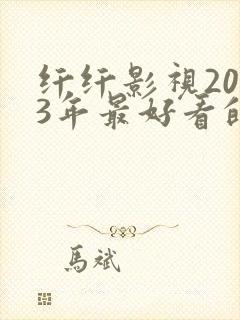 纤纤影視20
3年最好看的
馬斌